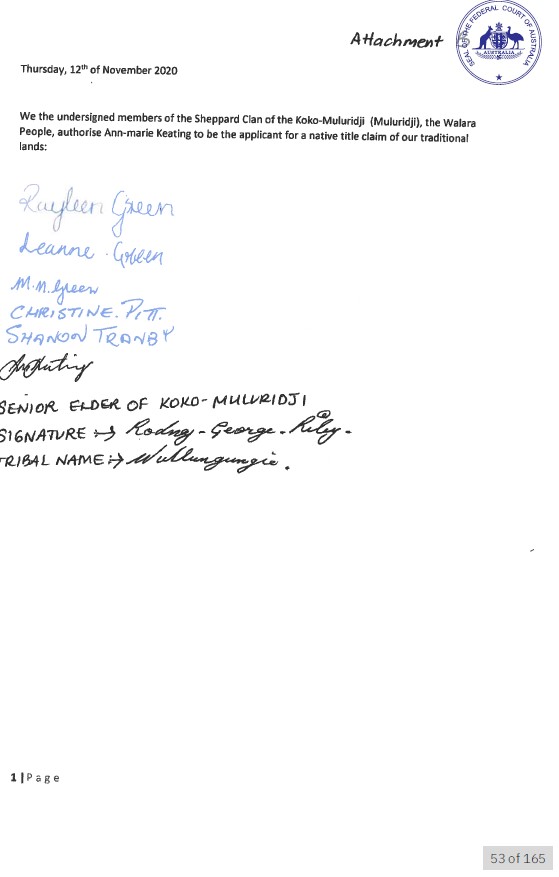 Attachment
SEAL OF THE FEDERAL COURT OF AUSTRALIA
AUSTRALIA
Thursday, 12th of November 2020
We the undersigned members of the Sheppard Clan of the Koko-Muluridji (Muluridji), the Walara
People, authorise Ann-marie Keating to be the applicant for a native title claim of our traditional
lands:
Rayleen Green
Leanne . Green
M.M. Green
CHRISTINE. PITT.
SHANON TRANBY
SENIOR ELDER OF KOKO-MULURIDJI
SIGNATURE :→ Rodney-George-Riley.
TRIBAL NAME :→ Wullungungie.
1 | Page
53 of 165